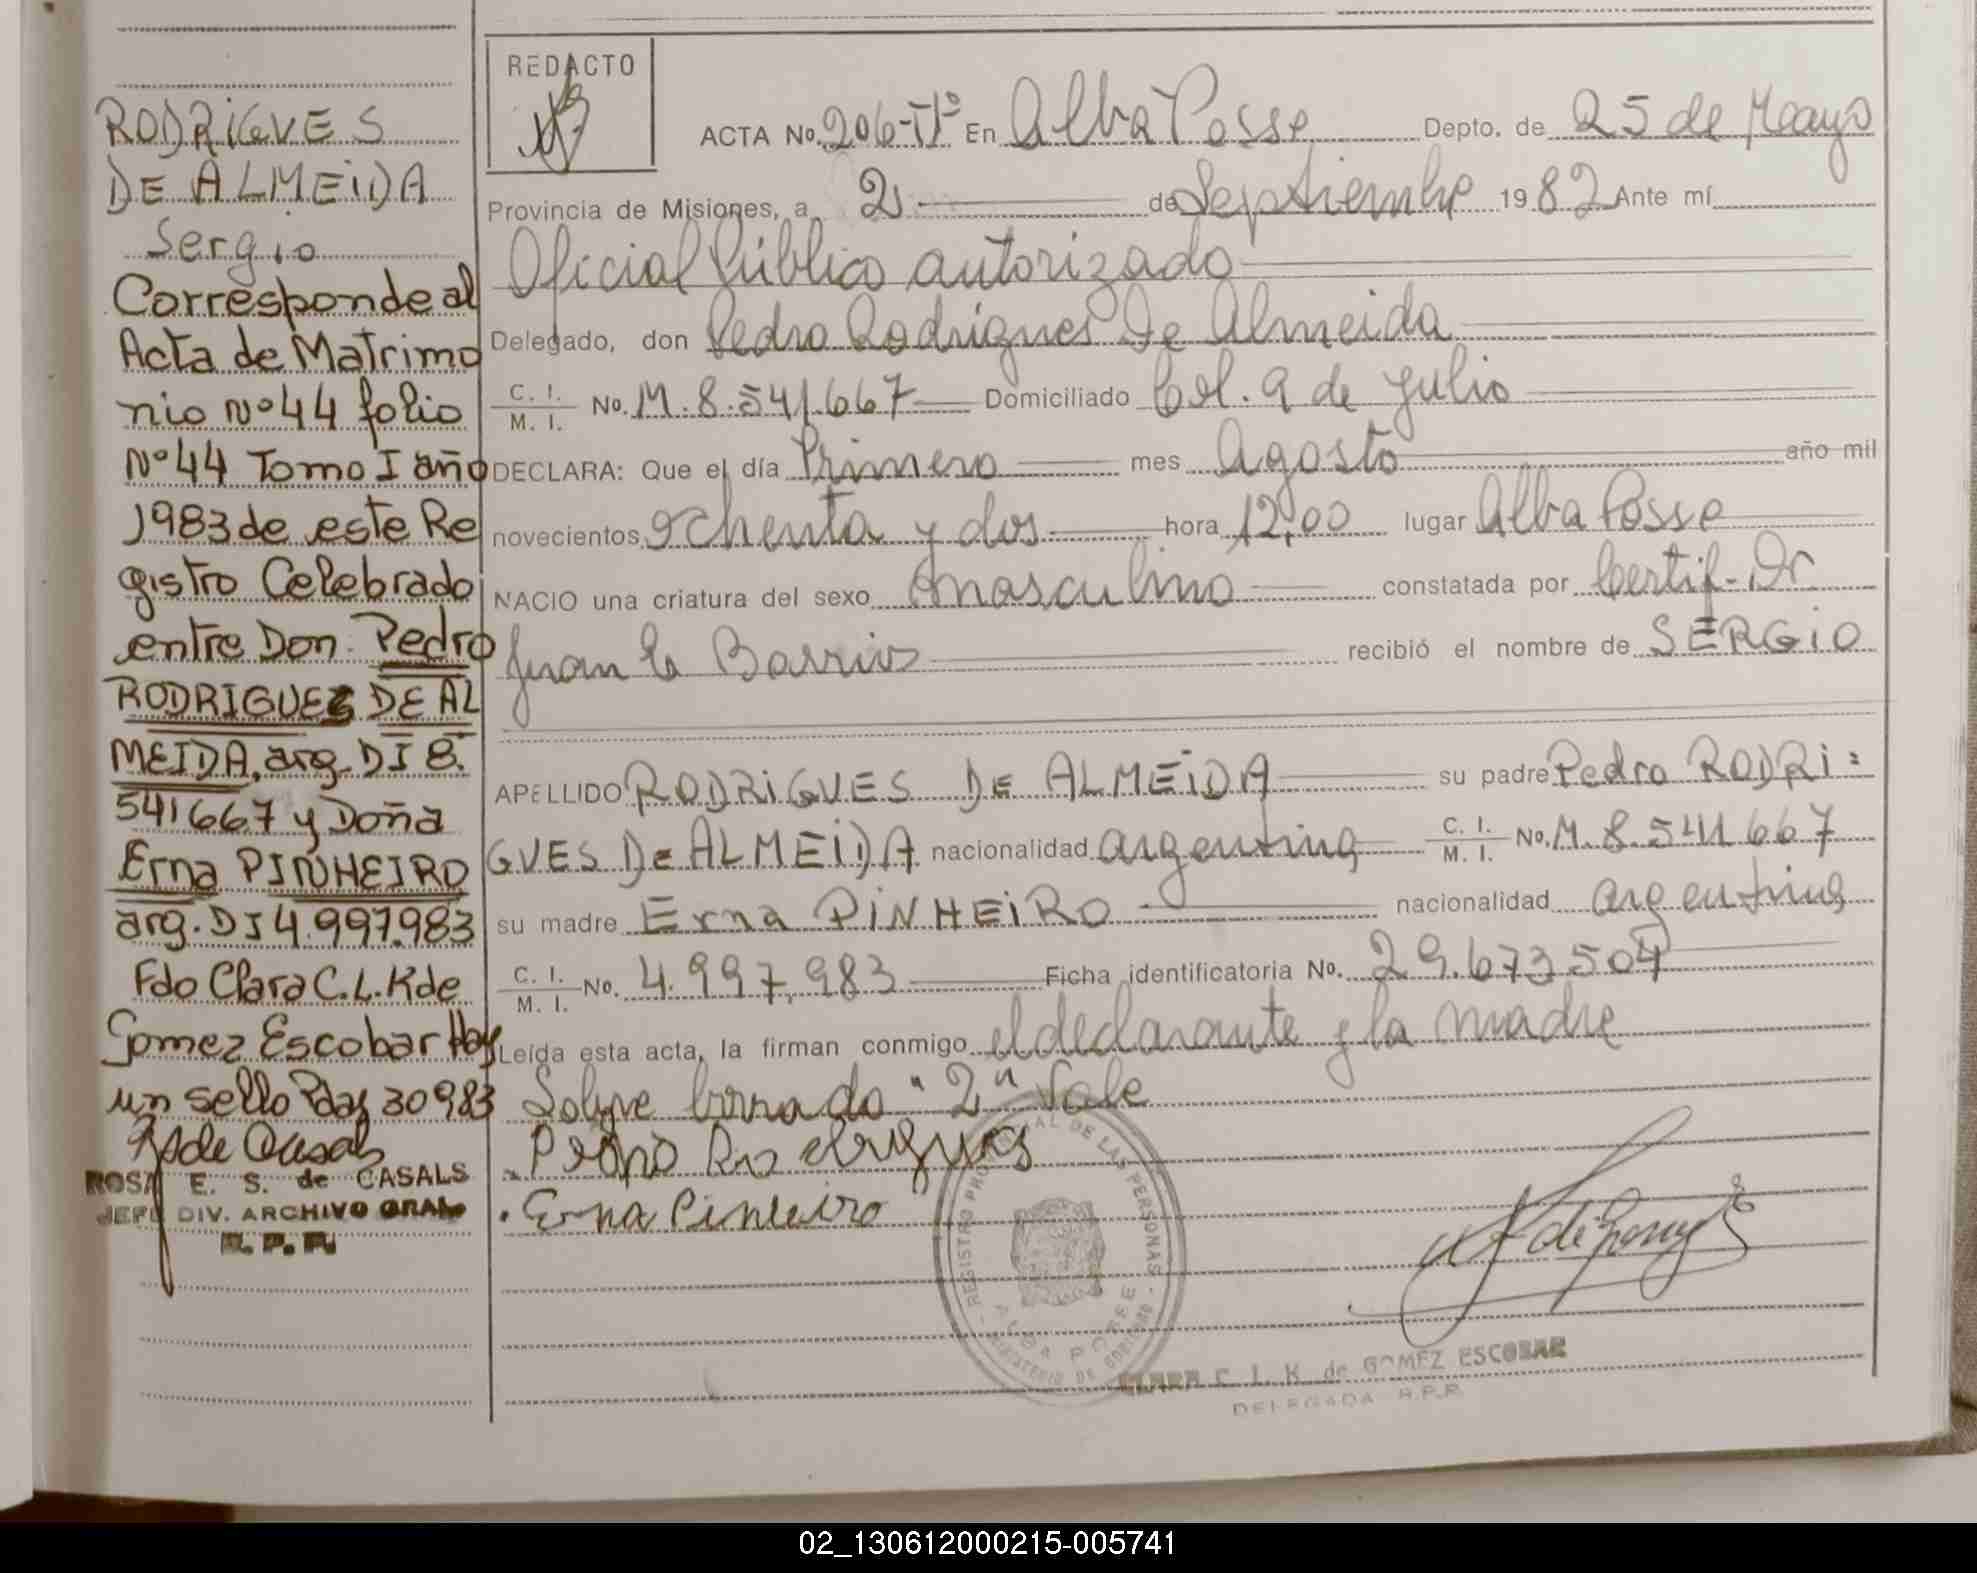 RODRIGUES
DE ALMEIDA
Sergio
Corresponde al
Acta de Matrimo
nio Nº 44 folio
Nº 44 Tomo I año
1983 de este Re
gistro Celebrado
entre Don: Pedro
RODRIGUES DE AL
MEIDA, arg. DI 8.
541667 y Doña
Erna PINHEIRO
arg. DI 4.997.983
Fdo Clara C.L.K de
Gomez Escobar Hay
un sello Pdas 30 9 83
ROSA E. S. de CASALS
JEFE DIV. ARCHIVO GRAL
R. P. P.
REDACTO
ACTA No. 206-Tº En Alba Posse Depto. de 25 de Mayo
Provincia de Misiones, a 2 de Septiembre 1982 Ante mí
Oficial Público autorizado
Delegado, don Pedro Rodrigues De Almeida
C. I.
M. I. No. M. 8.541.667 Domiciliado Col. 9 de Julio
DECLARA: Que el día Primero mes Agosto año mil
novecientos ochenta y dos hora 12,00 lugar Alba Posse
NACIO una criatura del sexo masculino constatada por Certif. Dr
Juan C. Barrios recibió el nombre de SERGIO
APELLIDO RODRIGUES DE ALMEIDA su padre Pedro RODRI=
GUES De ALMEIDA nacionalidad argentina C. I.
M. I. No. M. 8.541.667
su madre Erna PINHEIRO nacionalidad argentina
C. I.
M. I. No. 4.997.983 Ficha identificatoria No. 29.673504
Leída esta acta, la firman conmigo el declarante y la madre
Sobre borrado "2" Vale
Pedro Rodrigues
Erna Pinheiro
REGISTRO PROVINCIAL DE LAS PERSONAS
MINISTERIO DE GOBIERNO
ALBA POSSE
CLARA C. L. K. de GOMEZ ESCOBAR
DELEGADA R.P.P.
02_130612000215-005741